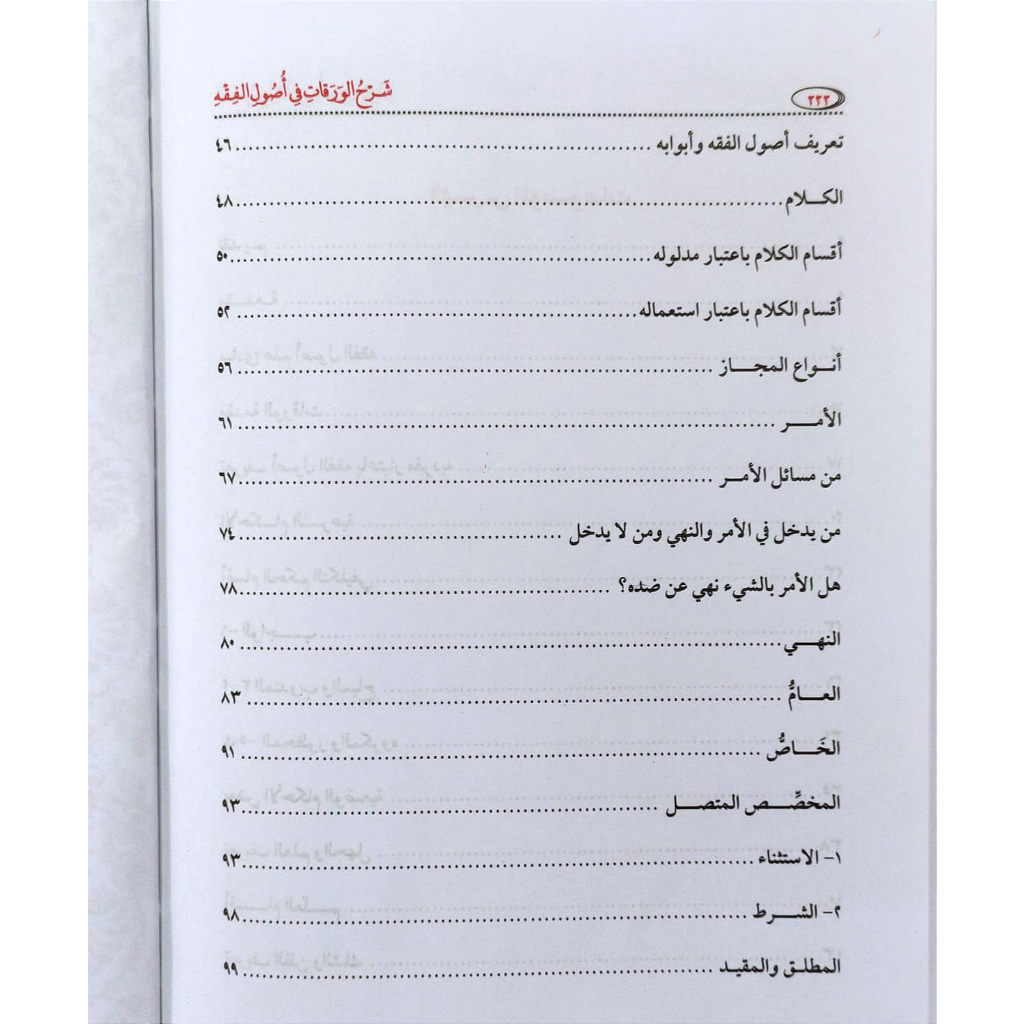 ٢٢٢ شَرْحُ الوَرَقَاتِ فِي أُصُولِ الفِقْهِ
تعريف أصول الفقه وأبوابه ........ ٤٦
الكـــلام ........ ٤٨
أقسام الكلام باعتبار مدلوله ........ ٥٠
أقسام الكلام باعتبار استعماله ........ ٥٢
أنـــواع المجـــاز ........ ٥٦
الأمـــــر ........ ٦١
من مسائل الأمـــر ........ ٦٧
من يدخل في الأمر والنهي ومن لا يدخل ........ ٧٤
هل الأمر بالشيء نهي عن ضده؟ ........ ٧٨
النهـــي ........ ٨٠
العـــامُّ ........ ٨٣
الخَـــاصُّ ........ ٩١
المخصِّـــص المتصـــل ........ ٩٣
١- الاستثناء ........ ٩٣
٢- الشـــرط ........ ٩٨
المطلـق والمقيـد ........ ٩٩